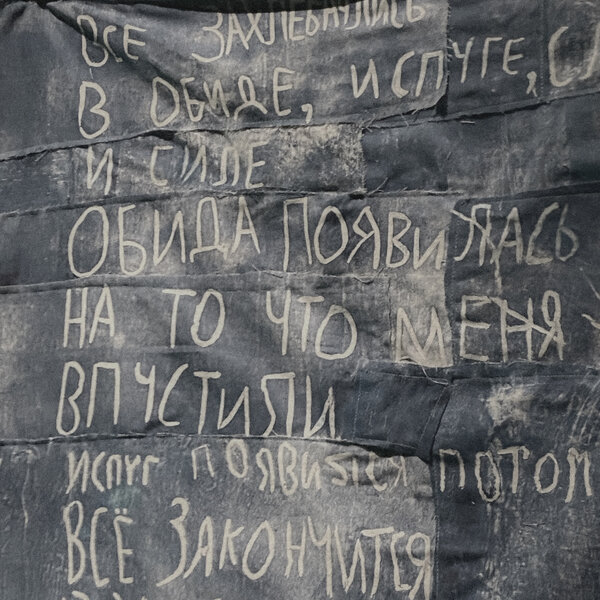 ВСЕ ЗАХЛЕБНУЛИСЬ
В ОБИДЕ, ИСПУГЕ,
И СИЛЕ
ОБИДА ПОЯВИЛАСЬ
НА ТО ЧТО МЕНЯ
ВПУСТИЛИ
ИСПУГ ПОЯВИЛСЯ ПОТОМ
ВСЁ ЗАКОНЧИТСЯ